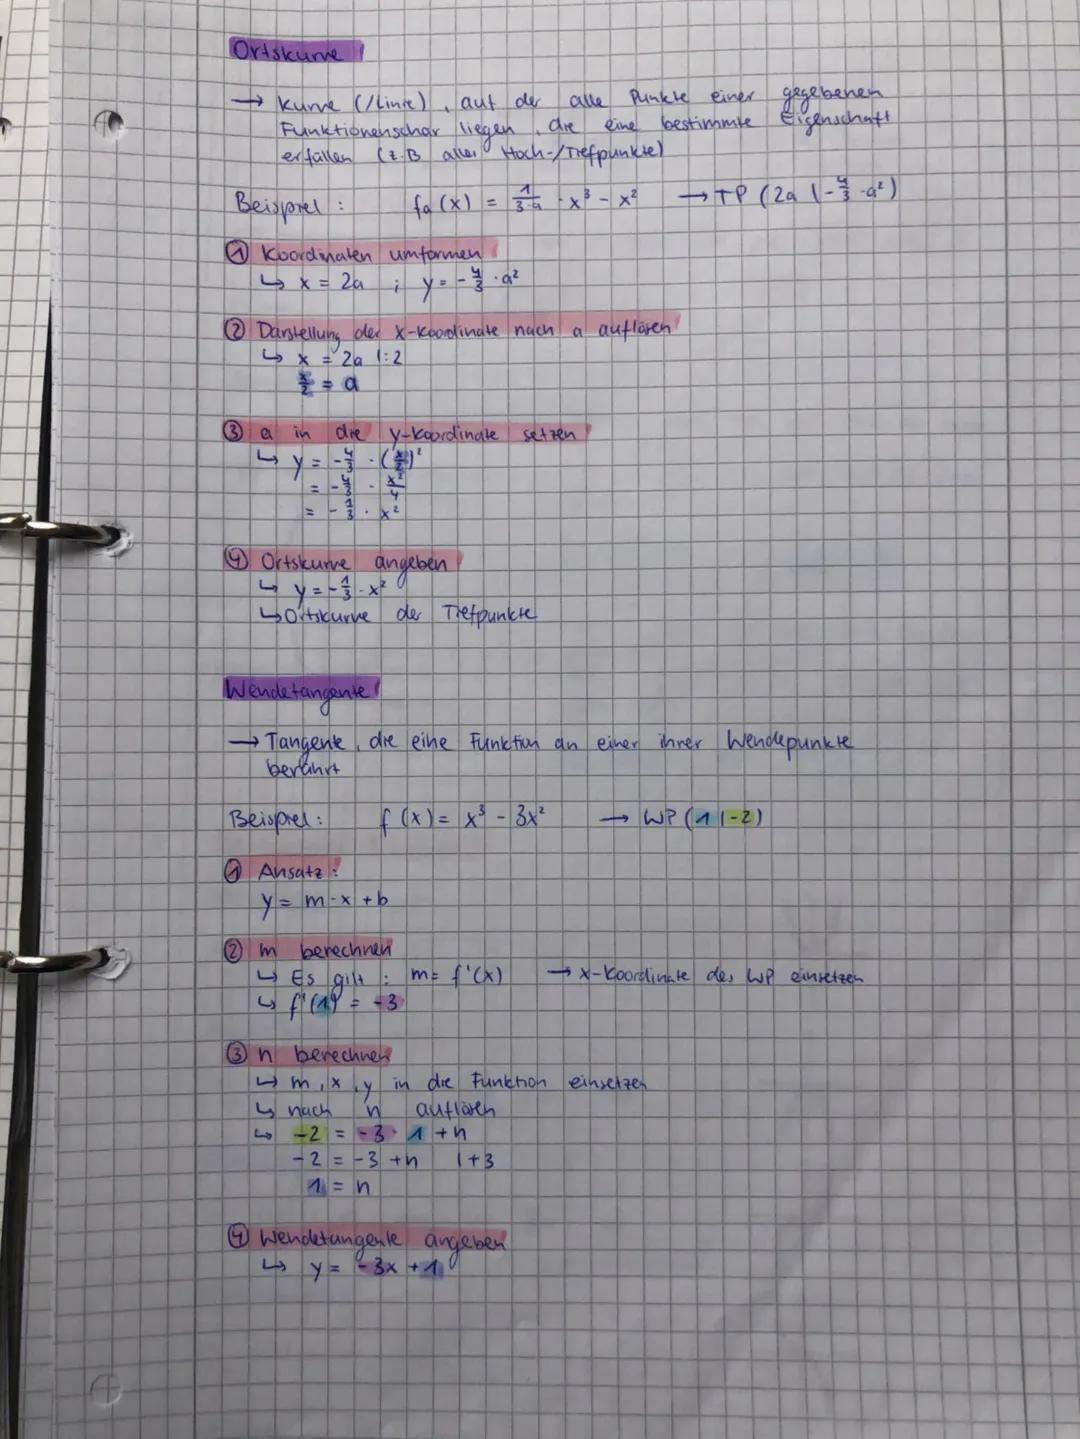 Ortskurve
→ Kurve (/Linie), auf der alle Punkte einer gegebenen
Funktionenschar liegen, die eine bestimmte Eigenschaft
erfüllen (z.B aller Hoch-/Tiefpunkte)
Beispiel: fa(x) = 1/3·a · x³ - x² → TP (2a | -4/3 · a²)
① Koordinaten umformen
↳ x = 2a ; y = -4/3 · a²
② Darstellung der x-Koordinate nach a auflösen
↳ x = 2a |:2
x/2 = a
③ a in die y-Koordinate setzen
↳ y = -4/3 · (x/2)²
= -4/3 · x²/4
= -1/3 · x²
④ Ortskurve angeben
↳ y = -1/3 · x²
↳ Ortskurve der Tiefpunkte
Wendetangente
→ Tangente, die eine Funktion an einer ihrer Wendepunkte
berührt
Beispiel: f(x) = x³ - 3x² → WP (1|-2)
① Ansatz:
y = m·x + b
② m berechnen
↳ Es gilt: m = f'(x) → x-Koordinate des WP einsetzen
↳ f'(1) = -3
③ n berechnen
↳ m, x, y in die Funktion einsetzen
↳ nach n auflösen
↳ -2 = -3 · 1 + n
-2 = -3 + n |+3
1 = n
④ Wendetangente angeben
↳ y = -3x + 1